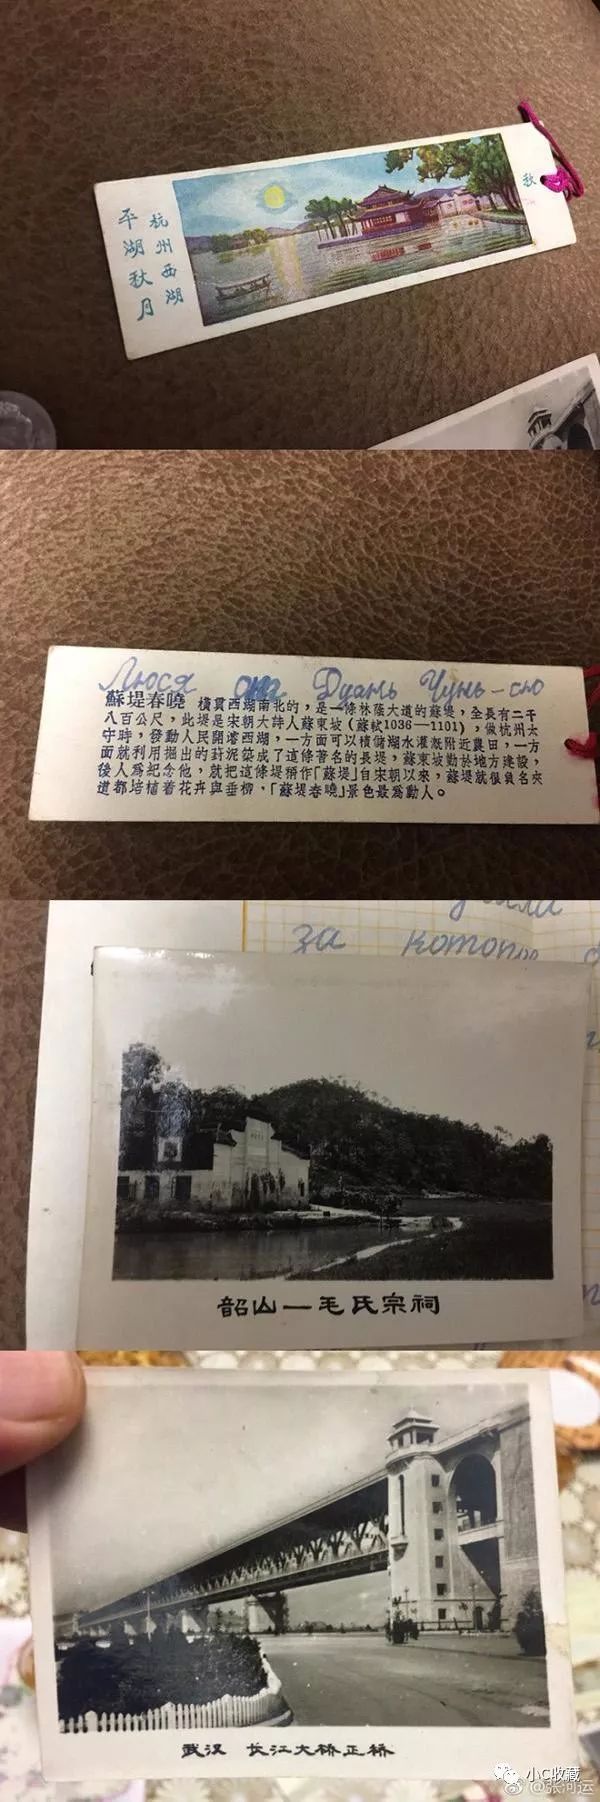 杭州西湖
平湖秋月
秋
Люся она Дуань Чунь-сю
蘇堤春曉 橫貫西湖南北的，是一條林蔭大道的蘇堤，全長有二千
八百公尺，此堤是宋朝大詩人蘇東坡（蘇軾1036—1101），做杭州太
守時，發動人民開濬西湖，一方面可以積儲湖水灌溉附近農田，一方
面就利用掘出的葑泥築成了這條著名的長堤，蘇東坡勤於地方建設，
後人爲紀念他，就把這條堤稱作「蘇堤」自宋朝以來，蘇堤就很負名夾
道都培植着花卉與垂柳，「蘇堤春曉」景色最爲動人。
за
韶山—毛氏宗祠
武汉 长江大桥正桥
小C收藏
@张河运